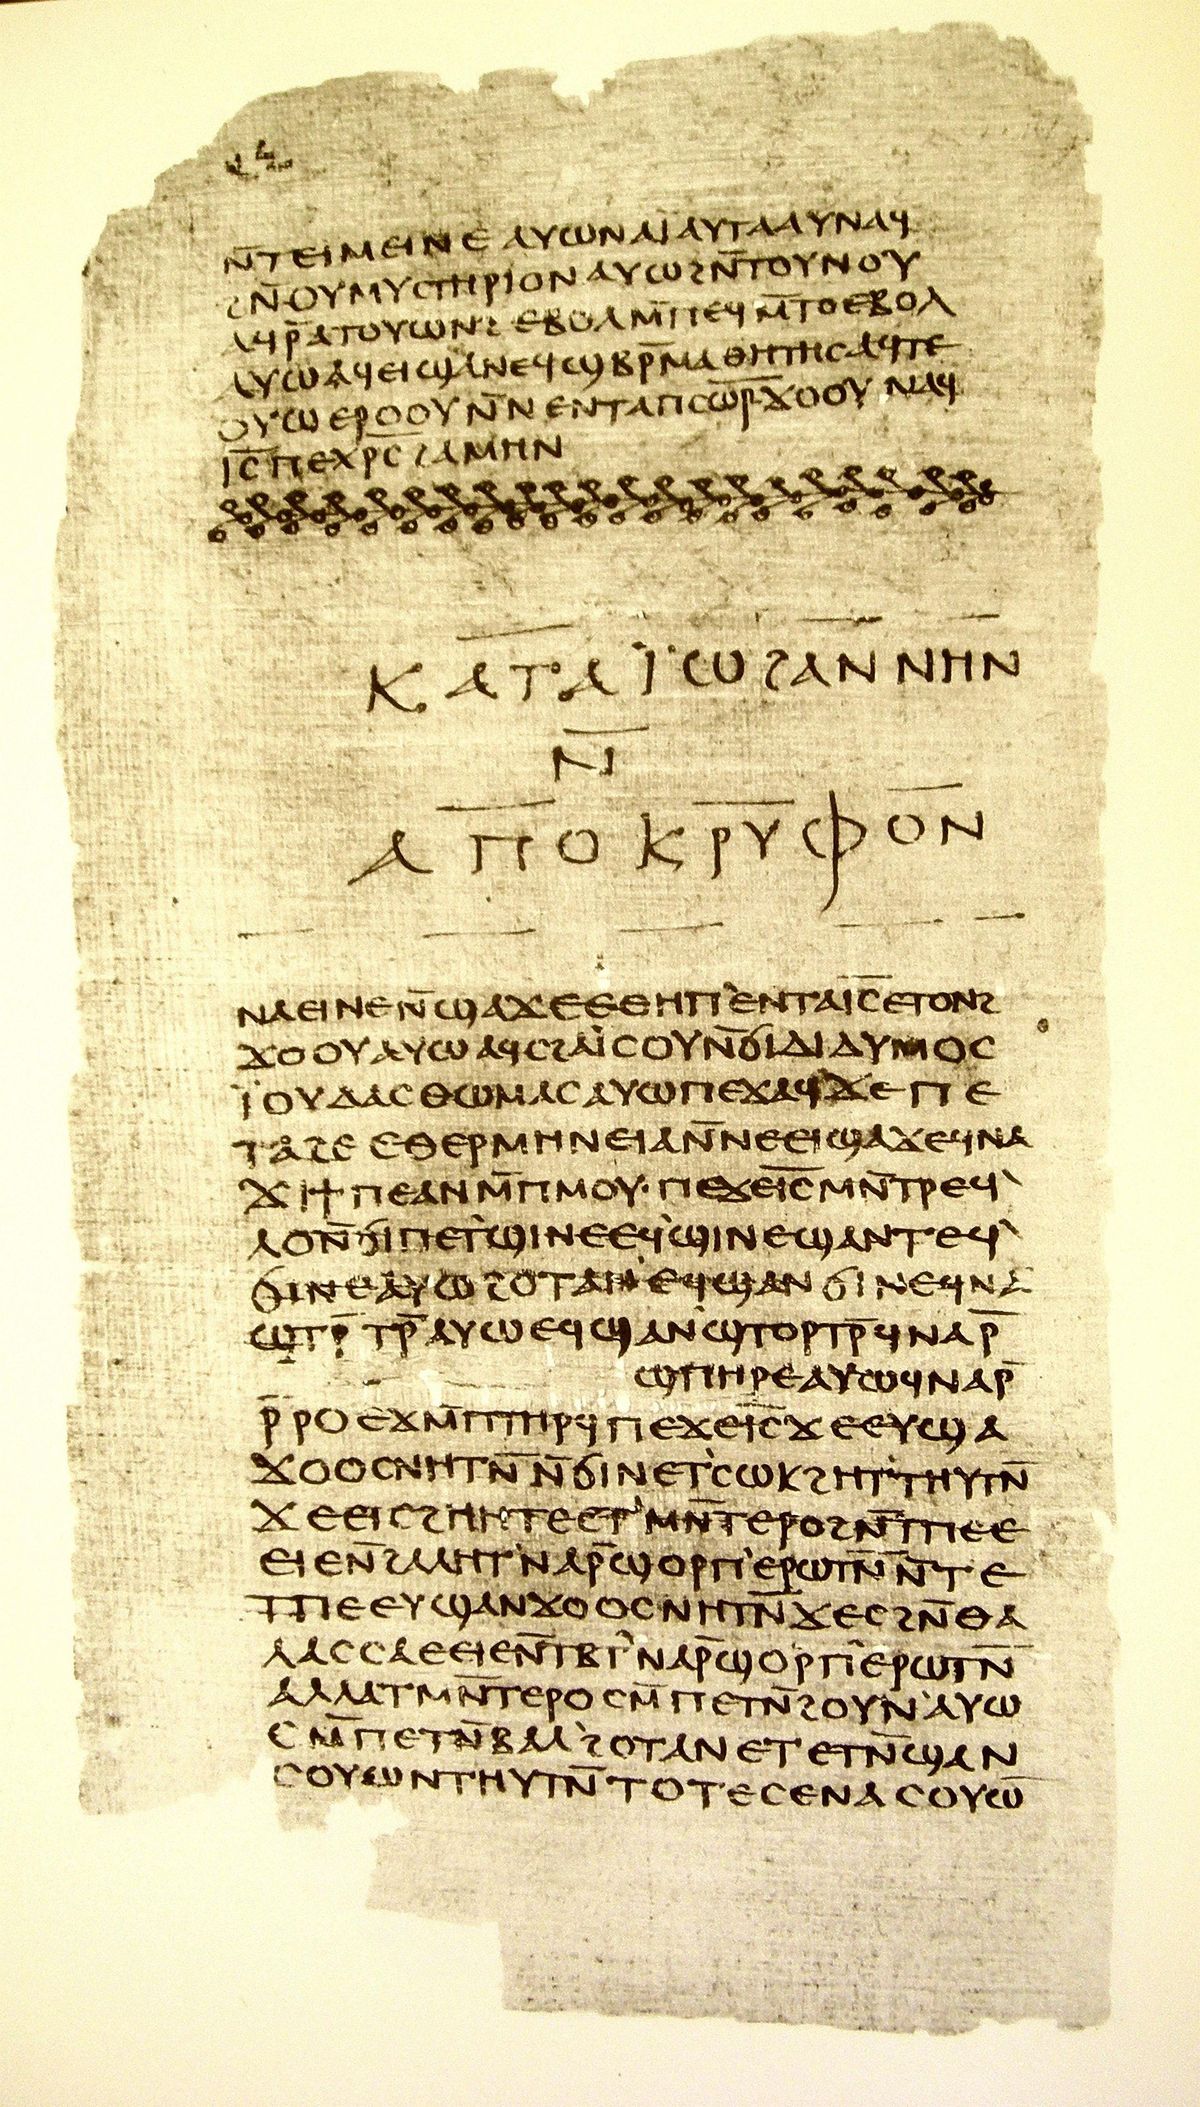 ⲛ̄ⲧⲉⲓⲙⲉⲓⲛⲉ ⲁⲩⲱ ⲛⲁⲓ̈ ⲁⲩⲧⲁⲁⲩ ⲛⲁϥ
ϩⲛ̄ ⲟⲩⲙⲩⲥⲧⲏⲣⲓⲟⲛ ⲁⲩⲱ ϩⲛ̄ ⲧⲟⲩⲛⲟⲩ
ⲁϥⲣ̄ⲁⲧⲟⲩⲱⲛϩ ⲉⲃⲟⲗ ⲙ̄ⲡⲉϥⲙ̄ⲧⲟ ⲉⲃⲟⲗ
ⲁⲩⲱ ⲁϥⲉⲓ ϣⲁ ⲛⲉϥϣⲃⲣ̄ⲙⲁⲑⲏⲧⲏⲥ ⲁϥⲧⲉ
ⲟⲩⲱ ⲉⲣⲟⲟⲩ ⲛ̄ⲛⲉⲛⲧⲁ ⲡⲥⲱ̄ⲣ̄ ϫⲟⲟⲩ ⲛⲁϥ
ⲓ̄ⲥ̄ ⲡⲉⲭ̄ⲣ̄ⲥ̄ ϩⲁⲙⲏⲛ
ⲕⲁⲧⲁ ⲓ̈ⲱϩⲁⲛⲛⲏⲛ
ⲛ̄
ⲁⲡⲟⲕⲣⲩⲫⲟⲛ
ⲛⲁⲉⲓ ⲛⲉ ⲛ̄ϣⲁϫⲉ ⲉⲑⲏⲡ ⲉⲛⲧⲁ ⲓ̄ⲥ̄ ⲉⲧⲟⲛϩ
ϫⲟⲟⲩ ⲁⲩⲱ ⲁϥⲥϩⲁⲓ̈ⲥⲟⲩ ⲛ̄ϭⲓ ⲇⲓⲇⲩⲙⲟⲥ
ⲓ̈ⲟⲩⲇⲁⲥ ⲑⲱⲙⲁⲥ ⲁⲩⲱ ⲡⲉϫⲁϥ ϫⲉ ⲡⲉ
ⲧⲁϩⲉ ⲉⲑⲉⲣⲙⲏⲛⲉⲓⲁ ⲛ̄ⲛⲉⲉⲓϣⲁϫⲉ ϥⲛⲁ
ϫⲓ ϯⲡⲉ ⲁⲛ ⲙ̄ⲡⲙⲟⲩ· ⲡⲉϫⲉ ⲓ̄ⲥ̄ ⲙⲛ̄ⲧⲣⲉϥ
ⲗⲟ ⲛ̄ϭⲓ ⲡⲉⲧϣⲓⲛⲉ ⲉϥϣⲓⲛⲉ ϣⲁⲛⲧⲉϥ
ϭⲓⲛⲉ ⲁⲩⲱ ϩⲟⲧⲁⲛ ⲉϥϣⲁⲛϭⲓⲛⲉ ϥⲛⲁ
ϣⲧⲣ̄ⲧⲣ̄ ⲁⲩⲱ ⲉϥϣⲁⲛϣⲧⲟⲣⲧⲣ̄ ϥⲛⲁⲣ̄
ϣⲡⲏⲣⲉ ⲁⲩⲱ ϥⲛⲁⲣ̄
ⲣ̄ⲣⲟ ⲉϫⲙ̄ ⲡⲧⲏⲣϥ ⲡⲉϫⲉ ⲓ̄ⲥ̄ ϫⲉ ⲉⲩϣⲁ
ϫⲟⲟⲥ ⲛⲏⲧⲛ̄ ⲛ̄ϭⲓ ⲛⲉⲧⲥⲱⲕ ϩⲏⲧ ⲧⲏⲩⲧⲛ̄
ϫⲉ ⲉⲓⲥϩⲏⲏⲧⲉ ⲉⲧⲙⲛ̄ⲧⲉⲣⲟ ϩⲛ̄ ⲧⲡⲉ ⲉ
ⲉⲓⲉ ⲛ̄ϩⲁⲗⲏⲧ ⲛⲁⲣ̄ ϣⲟⲣⲡ ⲉⲣⲱⲧⲛ̄ ⲛ̄ⲧⲉ
ⲧⲡⲉ ⲉⲩϣⲁⲛϫⲟⲟⲥ ⲛⲏⲧⲛ̄ ϫⲉ ⲥϩⲛ̄ ⲑⲁ
ⲗⲁⲥⲥⲁ ⲉⲉⲓⲉ ⲛ̄ⲧⲃⲧ ⲛⲁⲣ̄ ϣⲟⲣⲡ ⲉⲣⲱⲧⲛ̄
ⲁⲗⲗⲁ ⲧⲙⲛ̄ⲧⲉⲣⲟ ⲥⲙ̄ⲡⲉⲧⲛ̄ϩⲟⲩⲛ ⲁⲩⲱ
ⲥⲙ̄ⲡⲉⲧⲛ̄ⲃⲁⲗ ϩⲟⲧⲁⲛ ⲉⲧⲉⲧⲛ̄ϣⲁⲛ
ⲥⲟⲩⲱⲛ ⲧⲏⲩⲧⲛ̄ ⲧⲟⲧⲉ ⲥⲉⲛⲁⲥⲟⲩⲱ̄